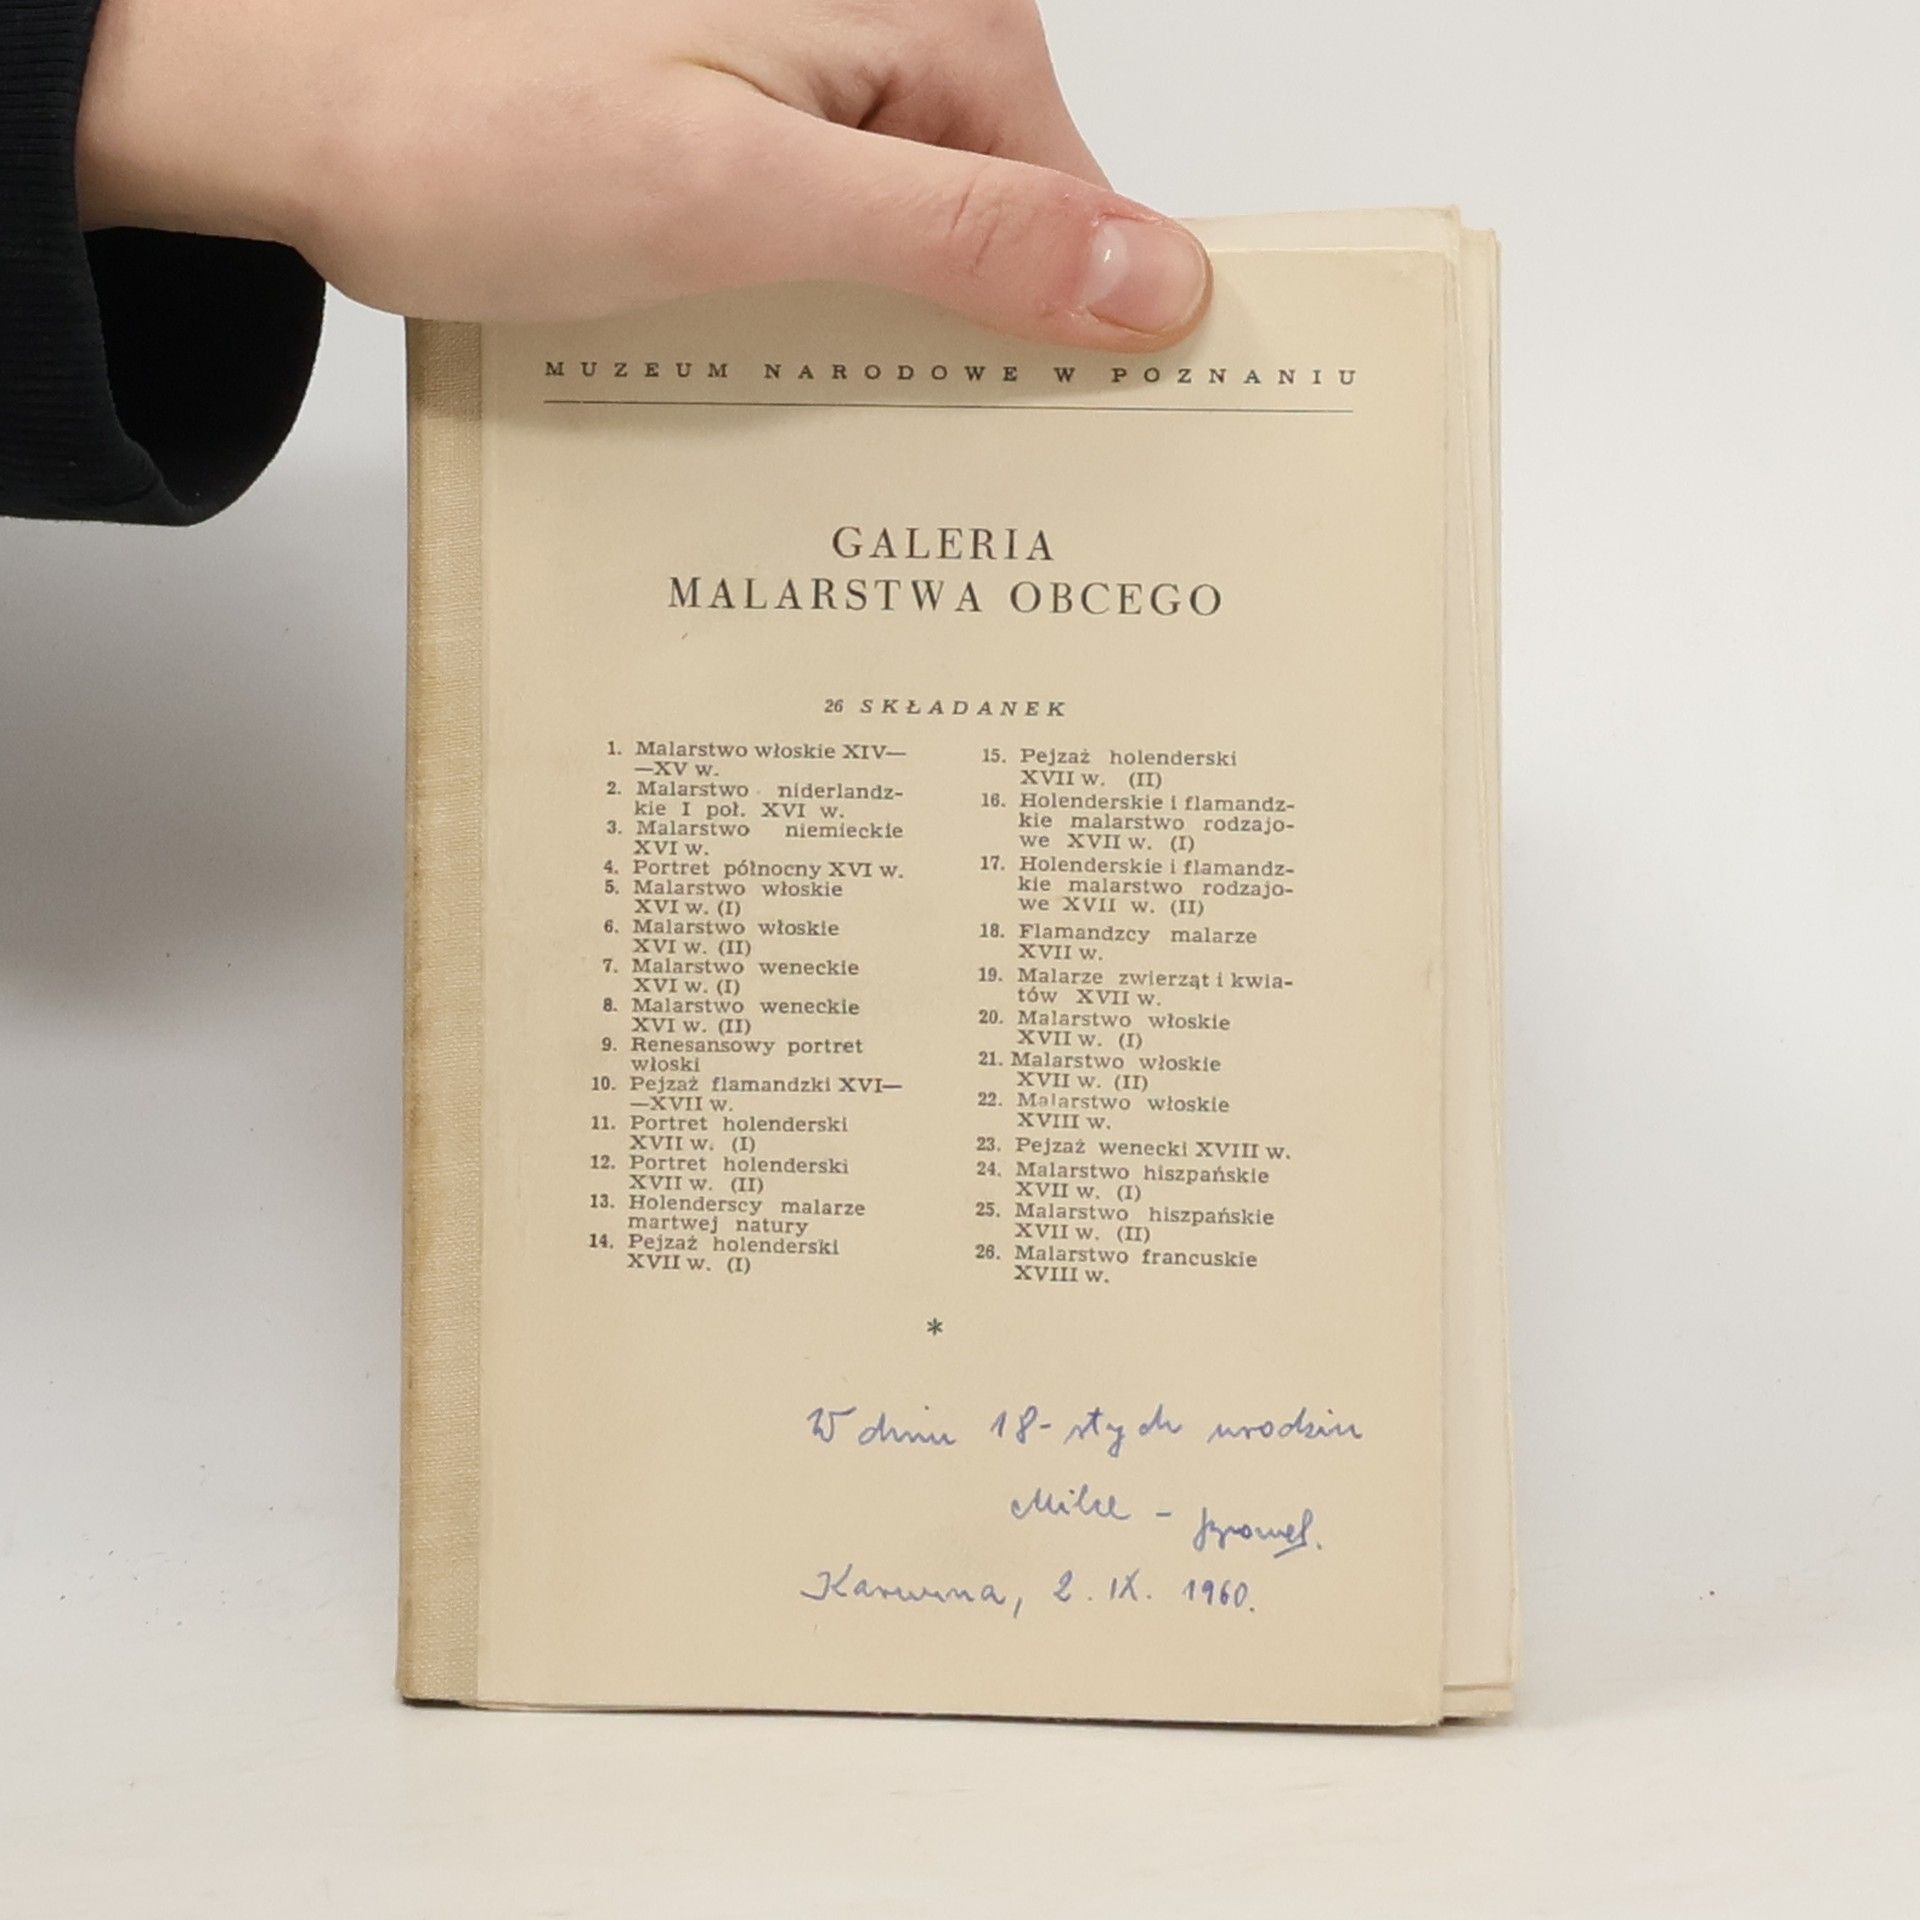 MUZEUM NARODOWE W POZNANIU
GALERIA
MALARSTWA OBCEGO
26 SKŁADANEK
1. Malarstwo włoskie XIV—
—XV w.
2. Malarstwo niderlandz-
kie I poł. XVI w.
3. Malarstwo niemieckie
XVI w.
4. Portret północny XVI w.
5. Malarstwo włoskie
XVI w. (I)
6. Malarstwo włoskie
XVI w. (II)
7. Malarstwo weneckie
XVI w. (I)
8. Malarstwo weneckie
XVI w. (II)
9. Renesansowy portret
włoski
10. Pejzaż flamandzki XVI—
—XVII w.
11. Portret holenderski
XVII w. (I)
12. Portret holenderski
XVII w. (II)
13. Holenderscy malarze
martwej natury
14. Pejzaż holenderski
XVII w. (I)
15. Pejzaż holenderski
XVII w. (II)
16. Holenderskie i flamandz-
kie malarstwo rodzajo-
we XVII w. (I)
17. Holenderskie i flamandz-
kie malarstwo rodzajo-
we XVII w. (II)
18. Flamandzcy malarze
XVII w.
19. Malarze zwierząt i kwia-
tów XVII w.
20. Malarstwo włoskie
XVII w. (I)
21. Malarstwo włoskie
XVII w. (II)
22. Malarstwo włoskie
XVIII w.
23. Pejzaż wenecki XVIII w.
24. Malarstwo hiszpańskie
XVII w. (I)
25. Malarstwo hiszpańskie
XVII w. (II)
26. Malarstwo francuskie
XVIII w.
*
W dniu 18-stych urodzin
Karwina, 2. IX. 1960.